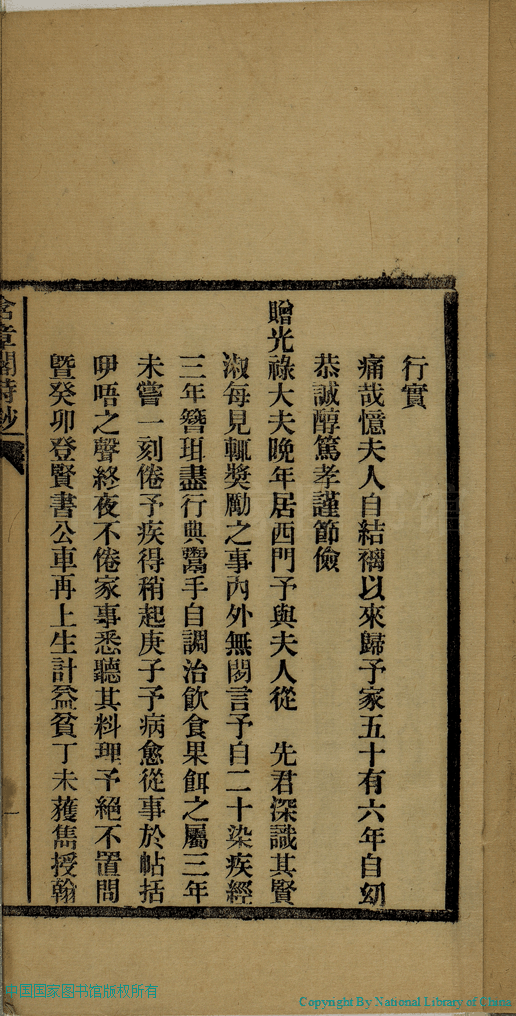 行實
痛哉憶夫人自結褵以來歸予家五十有六年自幼
恭誠醇篤孝謹節儉
贈光祿大夫晚年居西門予與夫人從　先君深識其賢
淑每見輒獎勵之事內外無閒言予自二十染疾經
三年簪珥盡行典鬻手自調治飲食果餌之屬三年
未嘗一刻倦予疾得稍起庚子予病愈從事於帖括
咿唔之聲終夜不倦家事悉聽其料理予絕不置問
曁癸卯登賢書公車再上生計益貧丁未獲雋授翰
含章閣詩鈔
一
中国国家图书馆版权所有
Copyright By National Library of China